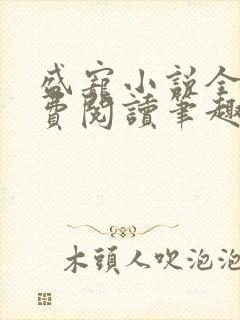 盛寵小說全
費閱讀筆趣
木頭人吹泡泡